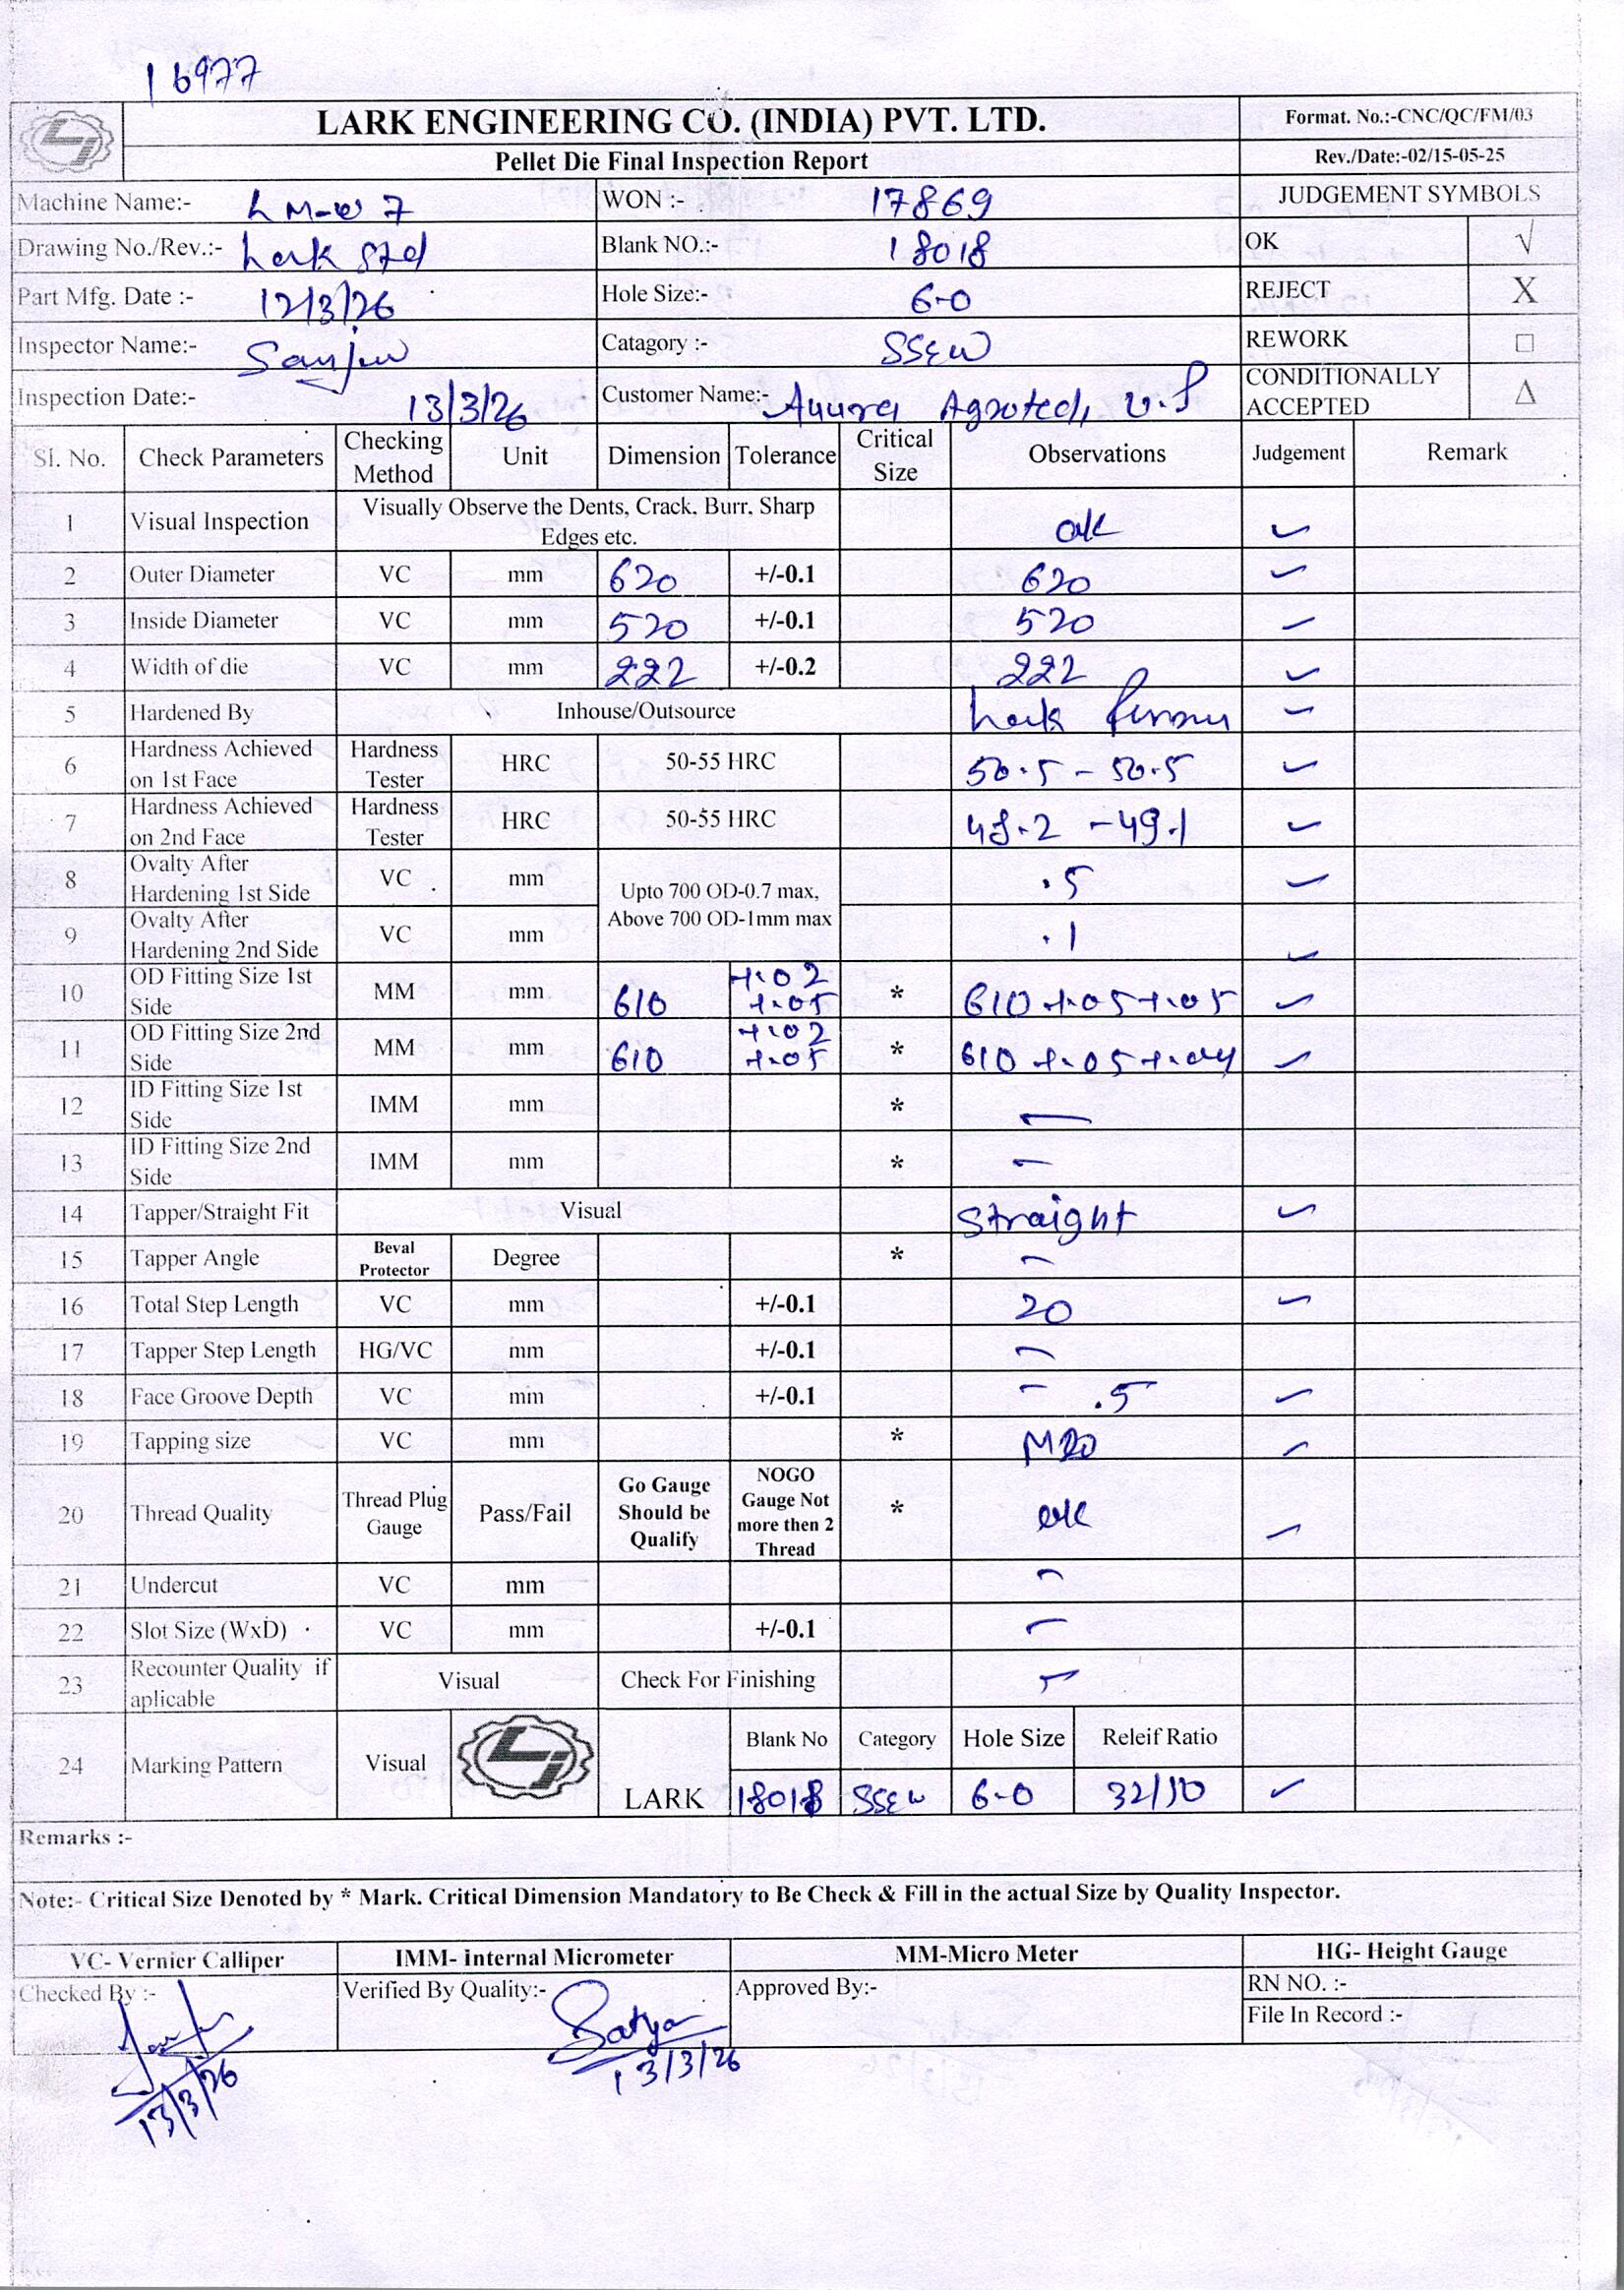 16977
LARK ENGINEERING CO. (INDIA) PVT. LTD.
Format. No.:-CNC/QC/FM/03
Pellet Die Final Inspection Report
Rev./Date:-02/15-05-25
Machine Name:- LM-W 7 WON :- 17869 JUDGEMENT SYMBOLS
Drawing No./Rev.:- Lark Std Blank NO.:- 18018 OK √
Part Mfg. Date :- 12/3/26 Hole Size:- 6-0 REJECT X
Inspector Name:- Sanjiv Catagory :- SSEW REWORK □
Inspection Date:- 13/3/26 Customer Name:- Agrotech U.P CONDITIONALLY ACCEPTED Δ
Sl. No. Check Parameters Checking Method Unit Dimension Tolerance Critical Size Observations Judgement Remark
1 Visual Inspection Visually Observe the Dents, Crack, Burr, Sharp Edges etc. ok ✓
2 Outer Diameter VC mm 620 +/-0.1 620 ✓
3 Inside Diameter VC mm 520 +/-0.1 520 ✓
4 Width of die VC mm 222 +/-0.2 222 ✓
5 Hardened By Inhouse/Outsource Lark ✓
6 Hardness Achieved on 1st Face Hardness Tester HRC 50-55 HRC 50.5 - 50.5 ✓
7 Hardness Achieved on 2nd Face Hardness Tester HRC 50-55 HRC 48.2 - 49.1 ✓
8 Ovalty After Hardening 1st Side VC mm Upto 700 OD-0.7 max, Above 700 OD-1mm max .5 ✓
9 Ovalty After Hardening 2nd Side VC mm .1 ✓
10 OD Fitting Size 1st Side MM mm 610 +.02 +.05 * 610 +.05 +.05 ✓
11 OD Fitting Size 2nd Side MM mm 610 +.02 +.05 * 610 +.05 +.04 ✓
12 ID Fitting Size 1st Side IMM mm * —
13 ID Fitting Size 2nd Side IMM mm * —
14 Tapper/Straight Fit Visual Straight ✓
15 Tapper Angle Beval Protector Degree * —
16 Total Step Length VC mm +/-0.1 20 ✓
17 Tapper Step Length HG/VC mm +/-0.1 —
18 Face Groove Depth VC mm +/-0.1 — .5 ✓
19 Tapping size VC mm * M20 ✓
20 Thread Quality Thread Plug Gauge Pass/Fail Go Gauge Should be Qualify NOGO Gauge Not more then 2 Thread * ok ✓
21 Undercut VC mm —
22 Slot Size (WxD) VC mm +/-0.1 —
23 Recounter Quality if aplicable Visual Check For Finishing —
24 Marking Pattern Visual LARK Blank No Category Hole Size Releif Ratio
18018 SSEW 6-0 32/10 ✓
Remarks :-
Note:- Critical Size Denoted by * Mark. Critical Dimension Mandatory to Be Check & Fill in the actual Size by Quality Inspector.
VC- Vernier Calliper IMM- internal Micrometer MM-Micro Meter HG- Height Gauge
Checked By :- Verified By Quality:- Satya Approved By:- RN NO. :-
File In Record :-
13/3/26 13/3/26